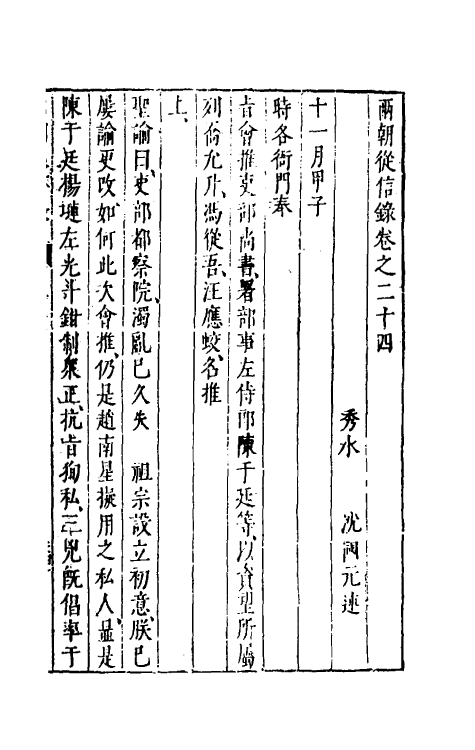 兩朝從信錄卷之二十四
秀水 沈國元述
十一月甲子
時各衙門奉
旨會推吏部尚書署部事左侍郎陳于廷等以資望所屬
列喬允升馮從吾汪應蛟名推
上
聖諭曰吏部都察院濁亂已久失 祖宗設立初意朕已
屢諭更改如何此次會推仍是趙南星擬用之私人顯是
陳于廷楊漣左光斗鉗制衆正抗旨狥私三兇旣倡率于